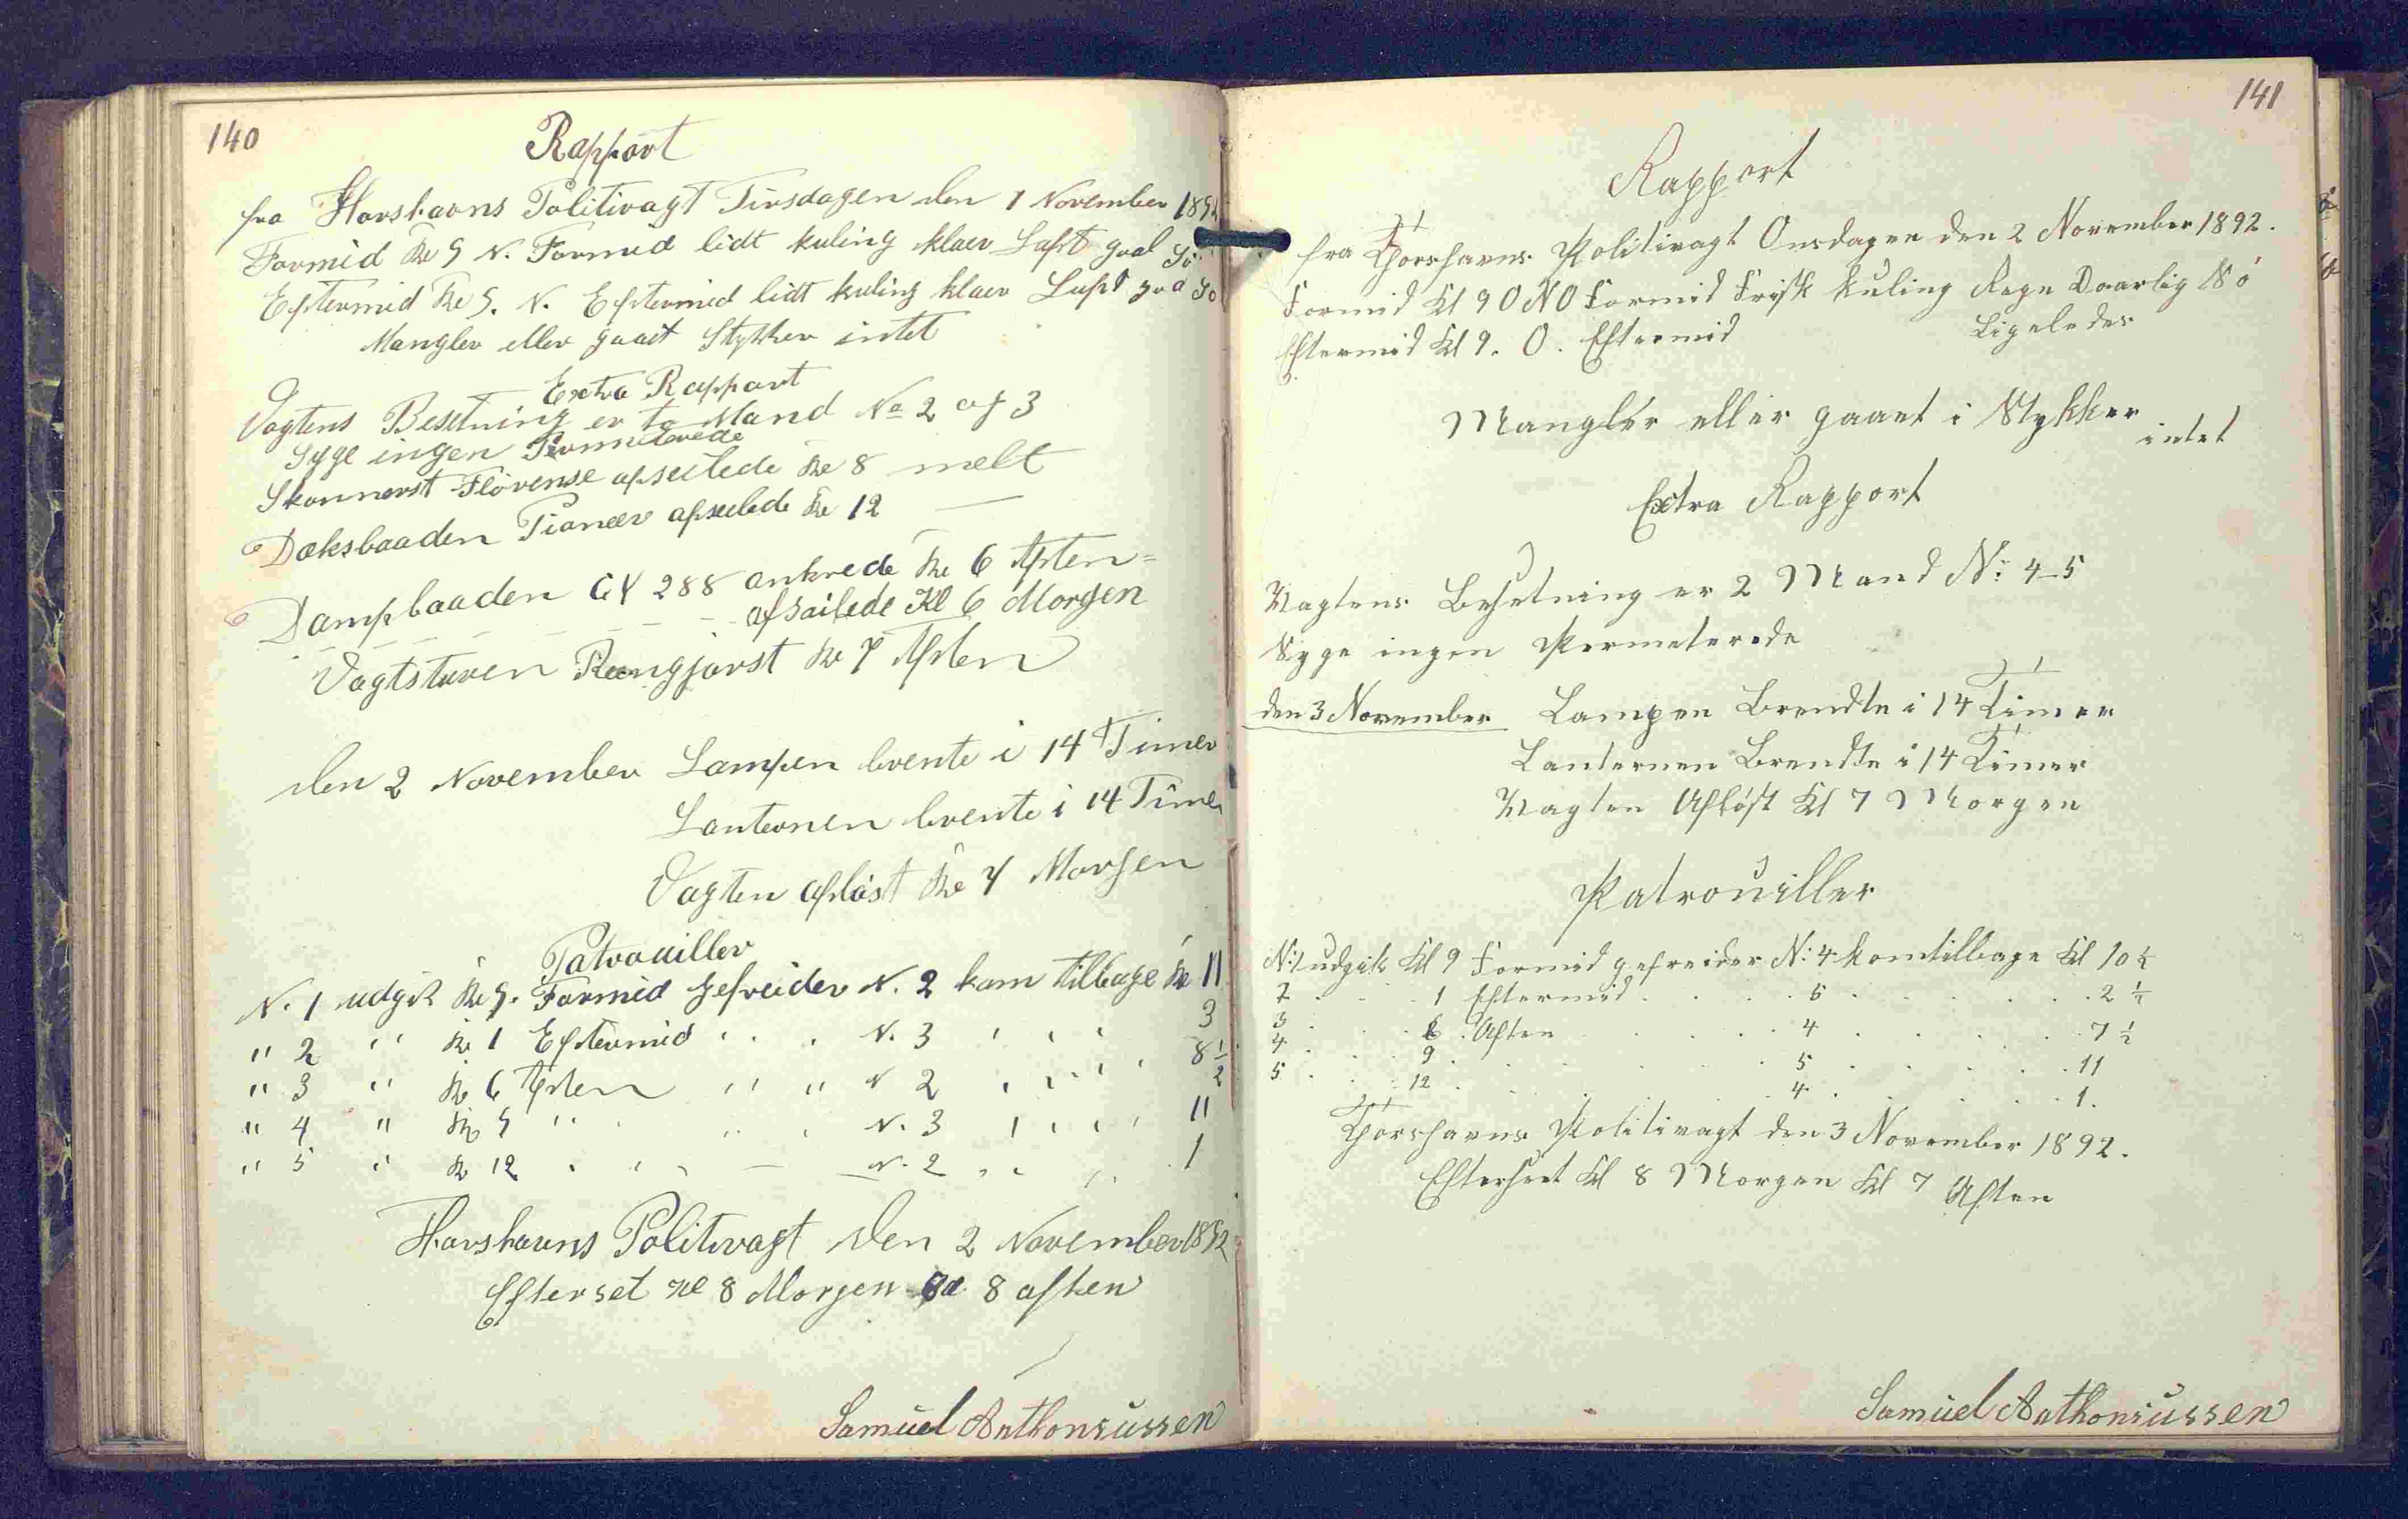 140
Rapport
fra Thorshavns Politivagt Tirsdagen den 1 November 1892
Formid Kl 9 N. Formid lidt kuling klaer Luft goed Sö
Eftermid Kl 9. N. Eftermid lidt kuling klaer Luft god Sö
Mangler eller gaaet Stykker intet
Extra Rapport
Vagtens Besetning er to Mand No 2 og 3
Syge ingen Permiterede
Skonnerst Florense afseilede Kl 8 melt
Dæksbaaden Pioneer afseilede Kl 12 —
Dampbaaden GY 288 ankrede Kl 6 Aften=
— — — — — afsailede Kl 6 Morgen
Vagtstuven Reengjorst Kl 7 Aften
den 2 November Lampen brente i 14 Timer
Lanternen brente i 14 Timer
Vagten aflöst Kl 7 Morgen
Patrouiller
N. 1 udgik Kl 9. Formid gefreider N. 2 kom tilbage Kl 11
" 2 " Kl 1 Eftermid " " N. 3 " " " 3
" 3 " Kl 6 Aften " " N 2 " " " 8 1/2
" 4 " Kl 9 " " " N. 3 " " " 11
" 5 " Kl 12 " " " — N. 2 " " " 1
Thorshavns Politivagt den 2 November 1892
Efterset Kl 8 Morgen 8 aften
Samuel Anthoniussen
141
Rapport
fra Thorshavns Politivagt Onsdagen den 2 November 1892.
Formid Kl 9 ONO Formid Frisk kuling Regn Daarlig Sö
Eftermid Kl 9. O. Eftermid Ligeledes
Mangler eller gaaet i Stykker intet
Extra Rapport
Vagtens Besetning er 2 Mand N: 4-5
Syge ingen Permeterede
den 3 November Lampen Brendte i 14 Timer
Lanternen Brendte i 14 Timer
Vagten Aflöst Kl 7 Morgen
Patrouiller
N: 1 udgik Kl 9 Formid gefreider N: 4 kom tilbage Kl 10 1/2
2 . . . 1 Eftermid . . . . 5 . . . . . 2 1/2
3 . . . 6 . Aften . . . 4 . . . . . 7 1/2
4 . . . 9 . . . . . 5 . . . . . 11
5 . . . 12 . . . . . 4 . . . . . 1.
Thorshavns Politivagt den 3 November 1892.
Efterseet Kl 8 Morgen Kl 7 Aften
Samuel Anthoniussen